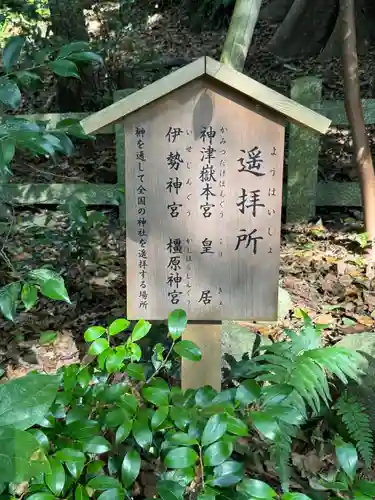 ようはいしょ
遥拝所
かみつだけほんぐう こうきょ
神津嶽本宮 皇居
いせじんぐう かしはらじんぐう
伊勢神宮 橿原神宮
榊を通して全国の神社を遥拝する場所